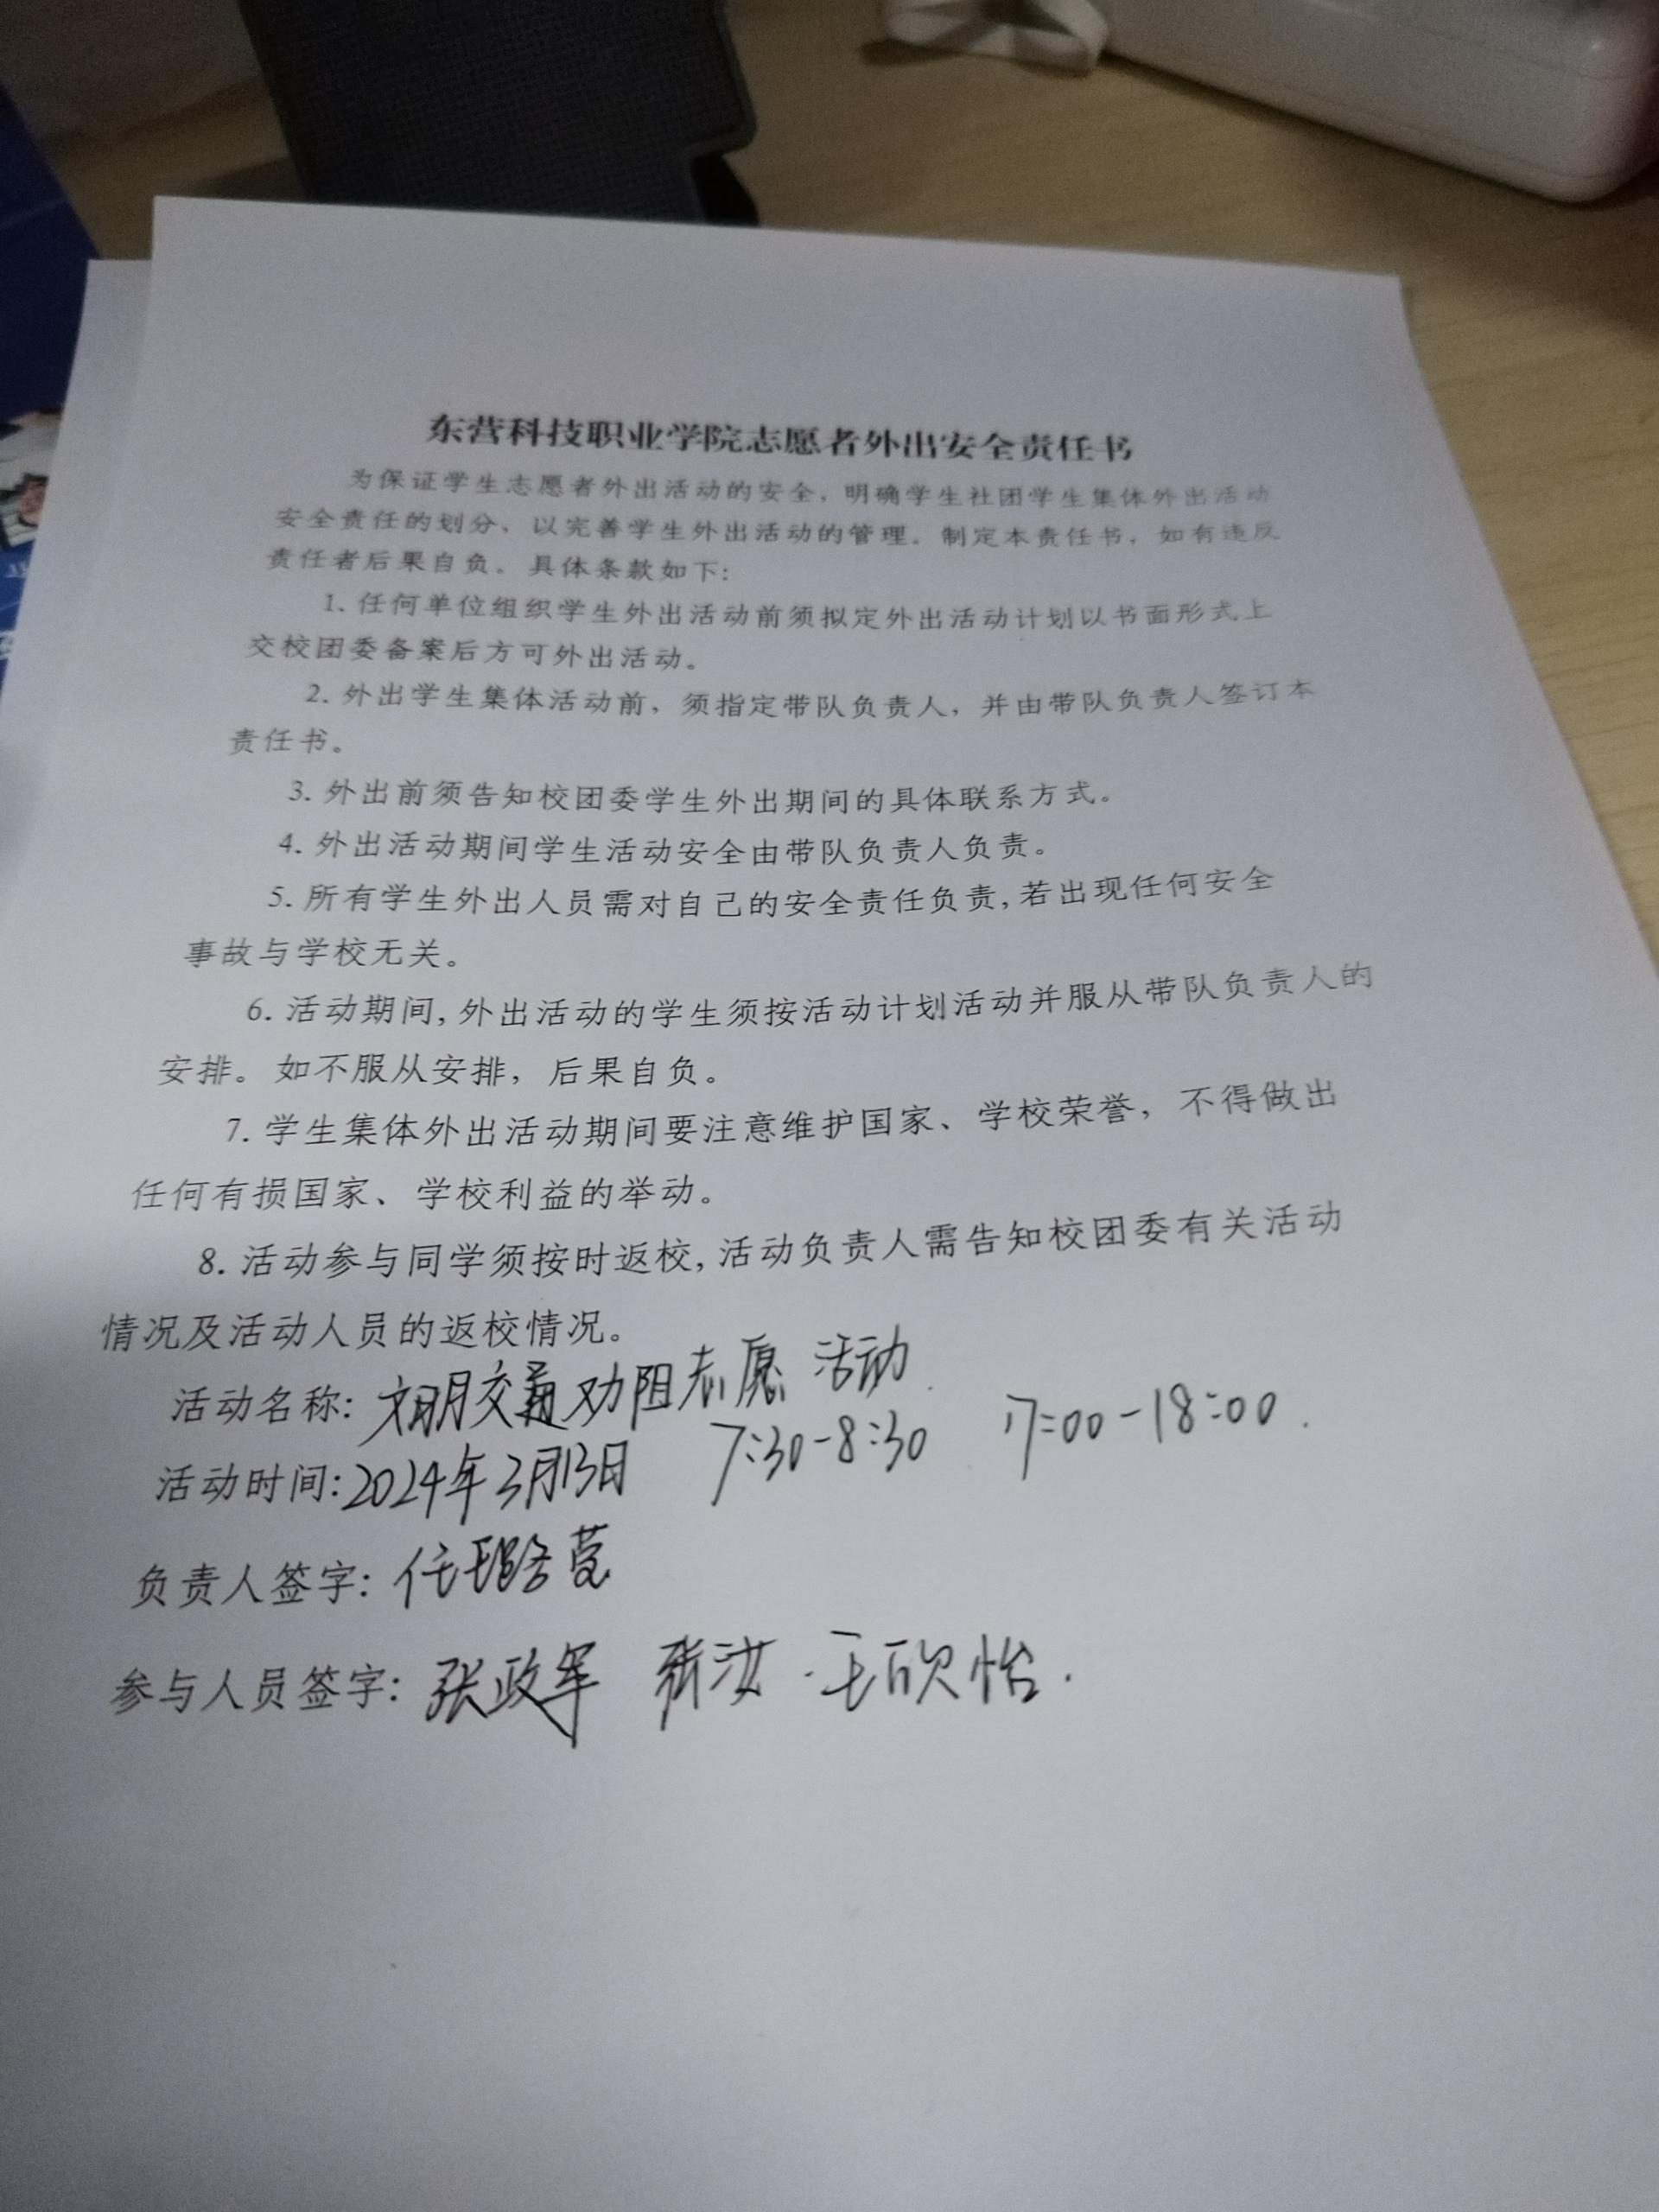 东营科技职业学院志愿者外出安全责任书
为保证学生志愿者外出活动的安全，明确学生社团学生集体外出活动
安全责任的划分，以完善学生外出活动的管理。制定本责任书，如有违反
责任者后果自负。具体条款如下：
1、任何单位组织学生外出活动前须拟定外出活动计划以书面形式上
交校团委备案后方可外出活动。
2. 外出学生集体活动前，须指定带队负责人，并由带队负责人签订本
责任书。
3. 外出前须告知校团委学生外出期间的具体联系方式。
4. 外出活动期间学生活动安全由带队负责人负责。
5. 所有学生外出人员需对自己的安全责任负责，若出现任何安全
事故与学校无关。
6. 活动期间，外出活动的学生须按活动计划活动并服从带队负责人的
安排。如不服从安排，后果自负。
7. 学生集体外出活动期间要注意维护国家、学校荣誉，不得做出
任何有损国家、学校利益的举动。
8. 活动参与同学须按时返校，活动负责人需告知校团委有关活动
情况及活动人员的返校情况。
活动名称：文明交通劝阻志愿活动
活动时间：2024年3月13日 7:30-8:30 17:00-18:00.
负责人签字：任璐莹
参与人员签字：张政军 王欣怡.